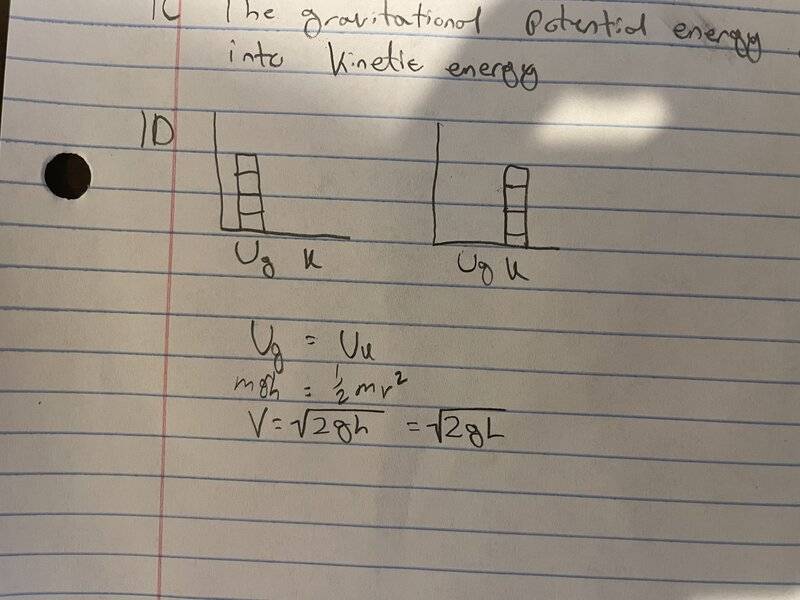 1C The gravitational potential energy
into kinetic energy
1D
Ug K Ug K
Ug = UK
mgh = 1/2 mv²
V = √2gh = √2gL